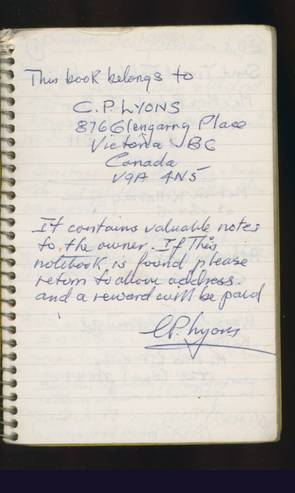 This book belongs to
C.P. LYONS
876 Glengarry Place
Victoria BC
Canada
V9A 4N5
It contains valuable notes
to the owner. If this
notebook is found please
return to above address.
and a reward will be paid
C.P. Lyons